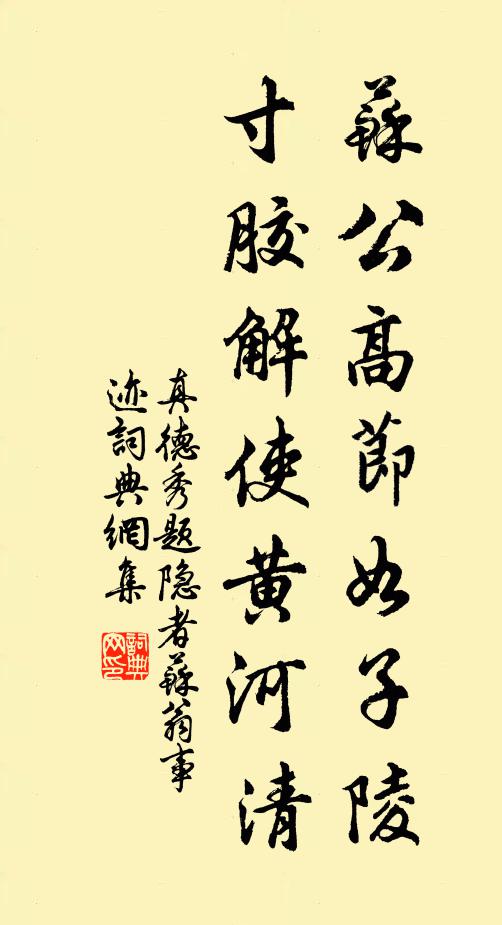 蘇公高節如子陵
寸膠解使黄河清
真德秀题隐者蘇翁事
迹詞典網集
詞典
网印